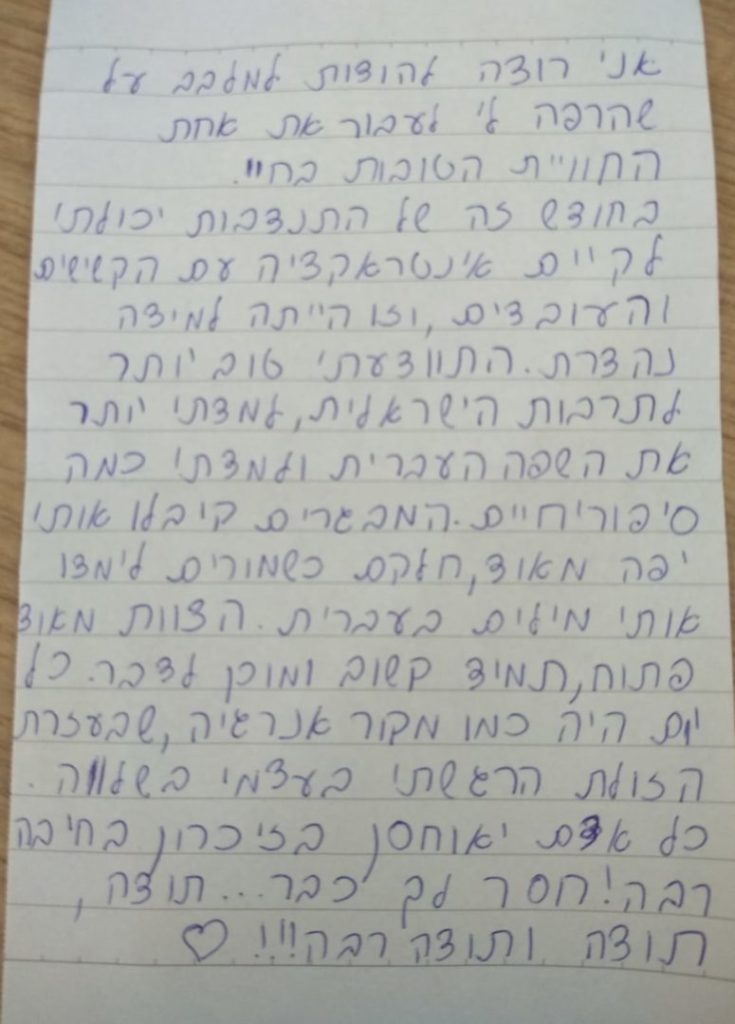 אני רוצה להודות למלבב על
שהרפה לי לעבור את אחת
החוויית הטובות בחיי.
בחודש זה של התנדבות יכולתי
לקיים אינטראקציה עם הקשישים
והעובדים, וזו הייתה למידה
נהדרת. התוודעתי טוב יותר
לתרבות הישראלית, למדתי יותר
את השפה העברית ולמדתי כמה
סיפורי חיים. המבגרים קיבלו אותי
יפה מאוד, חלקם כשמורים לימדו
אותי מילים בעברית. הצוות מאוד
פתוח, תמיד קשוב ומוכן לדבר. כל
יום היה כמו מקור אנרגיה, שבעזרת
הזולת הרגשתי בעצמי בשלווה.
כל אדם יאוחסן בזיכרון בחיבה
רבה! חסר לך כבר... תודה,
תודה ותודה רבה!!! ♡